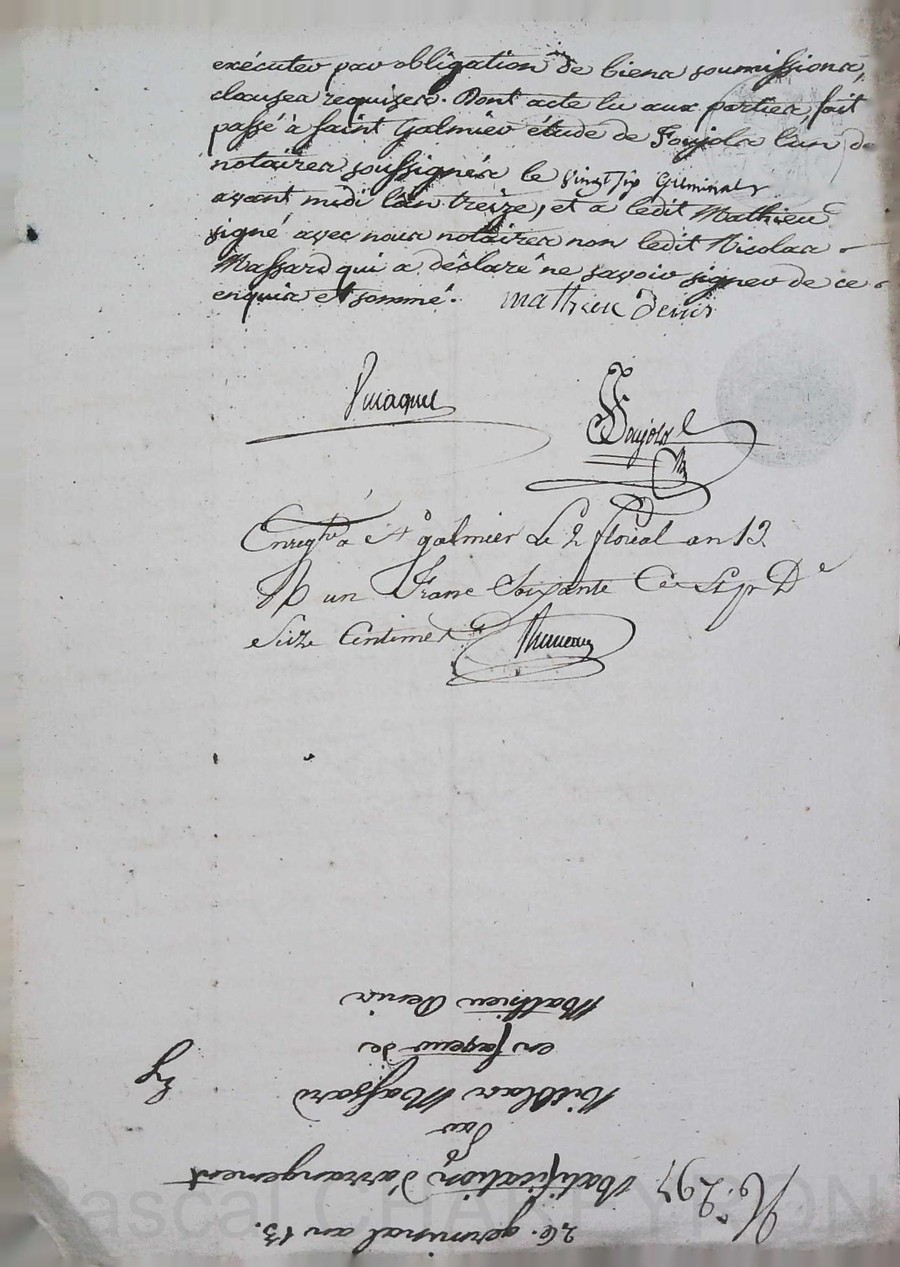 exécuter par obligation de biens soumissions,
clauses requises. Dont acte lu aux parties, fait
passé à Saint Galmier étude de Foujols l'un de
notaires soussignés le vingt six Germinal
avant midi l'an treize, et a ledit Mathieu
signé avec nous notaires non ledit Nicolas
Massard qui a déclaré ne savoir signer de ce
enquis et sommé. mathieu Denis
Foujols
Enregtré à St galmier Le 2 floréal an 13
R un Franc Soixante Ce
seize Centimes
26. germinal an 13.
No. 297 Ratification d'arrangement
Par
Nicolas Massard
en faveur de
Mathieu Denis
Pascal CHAREYRON